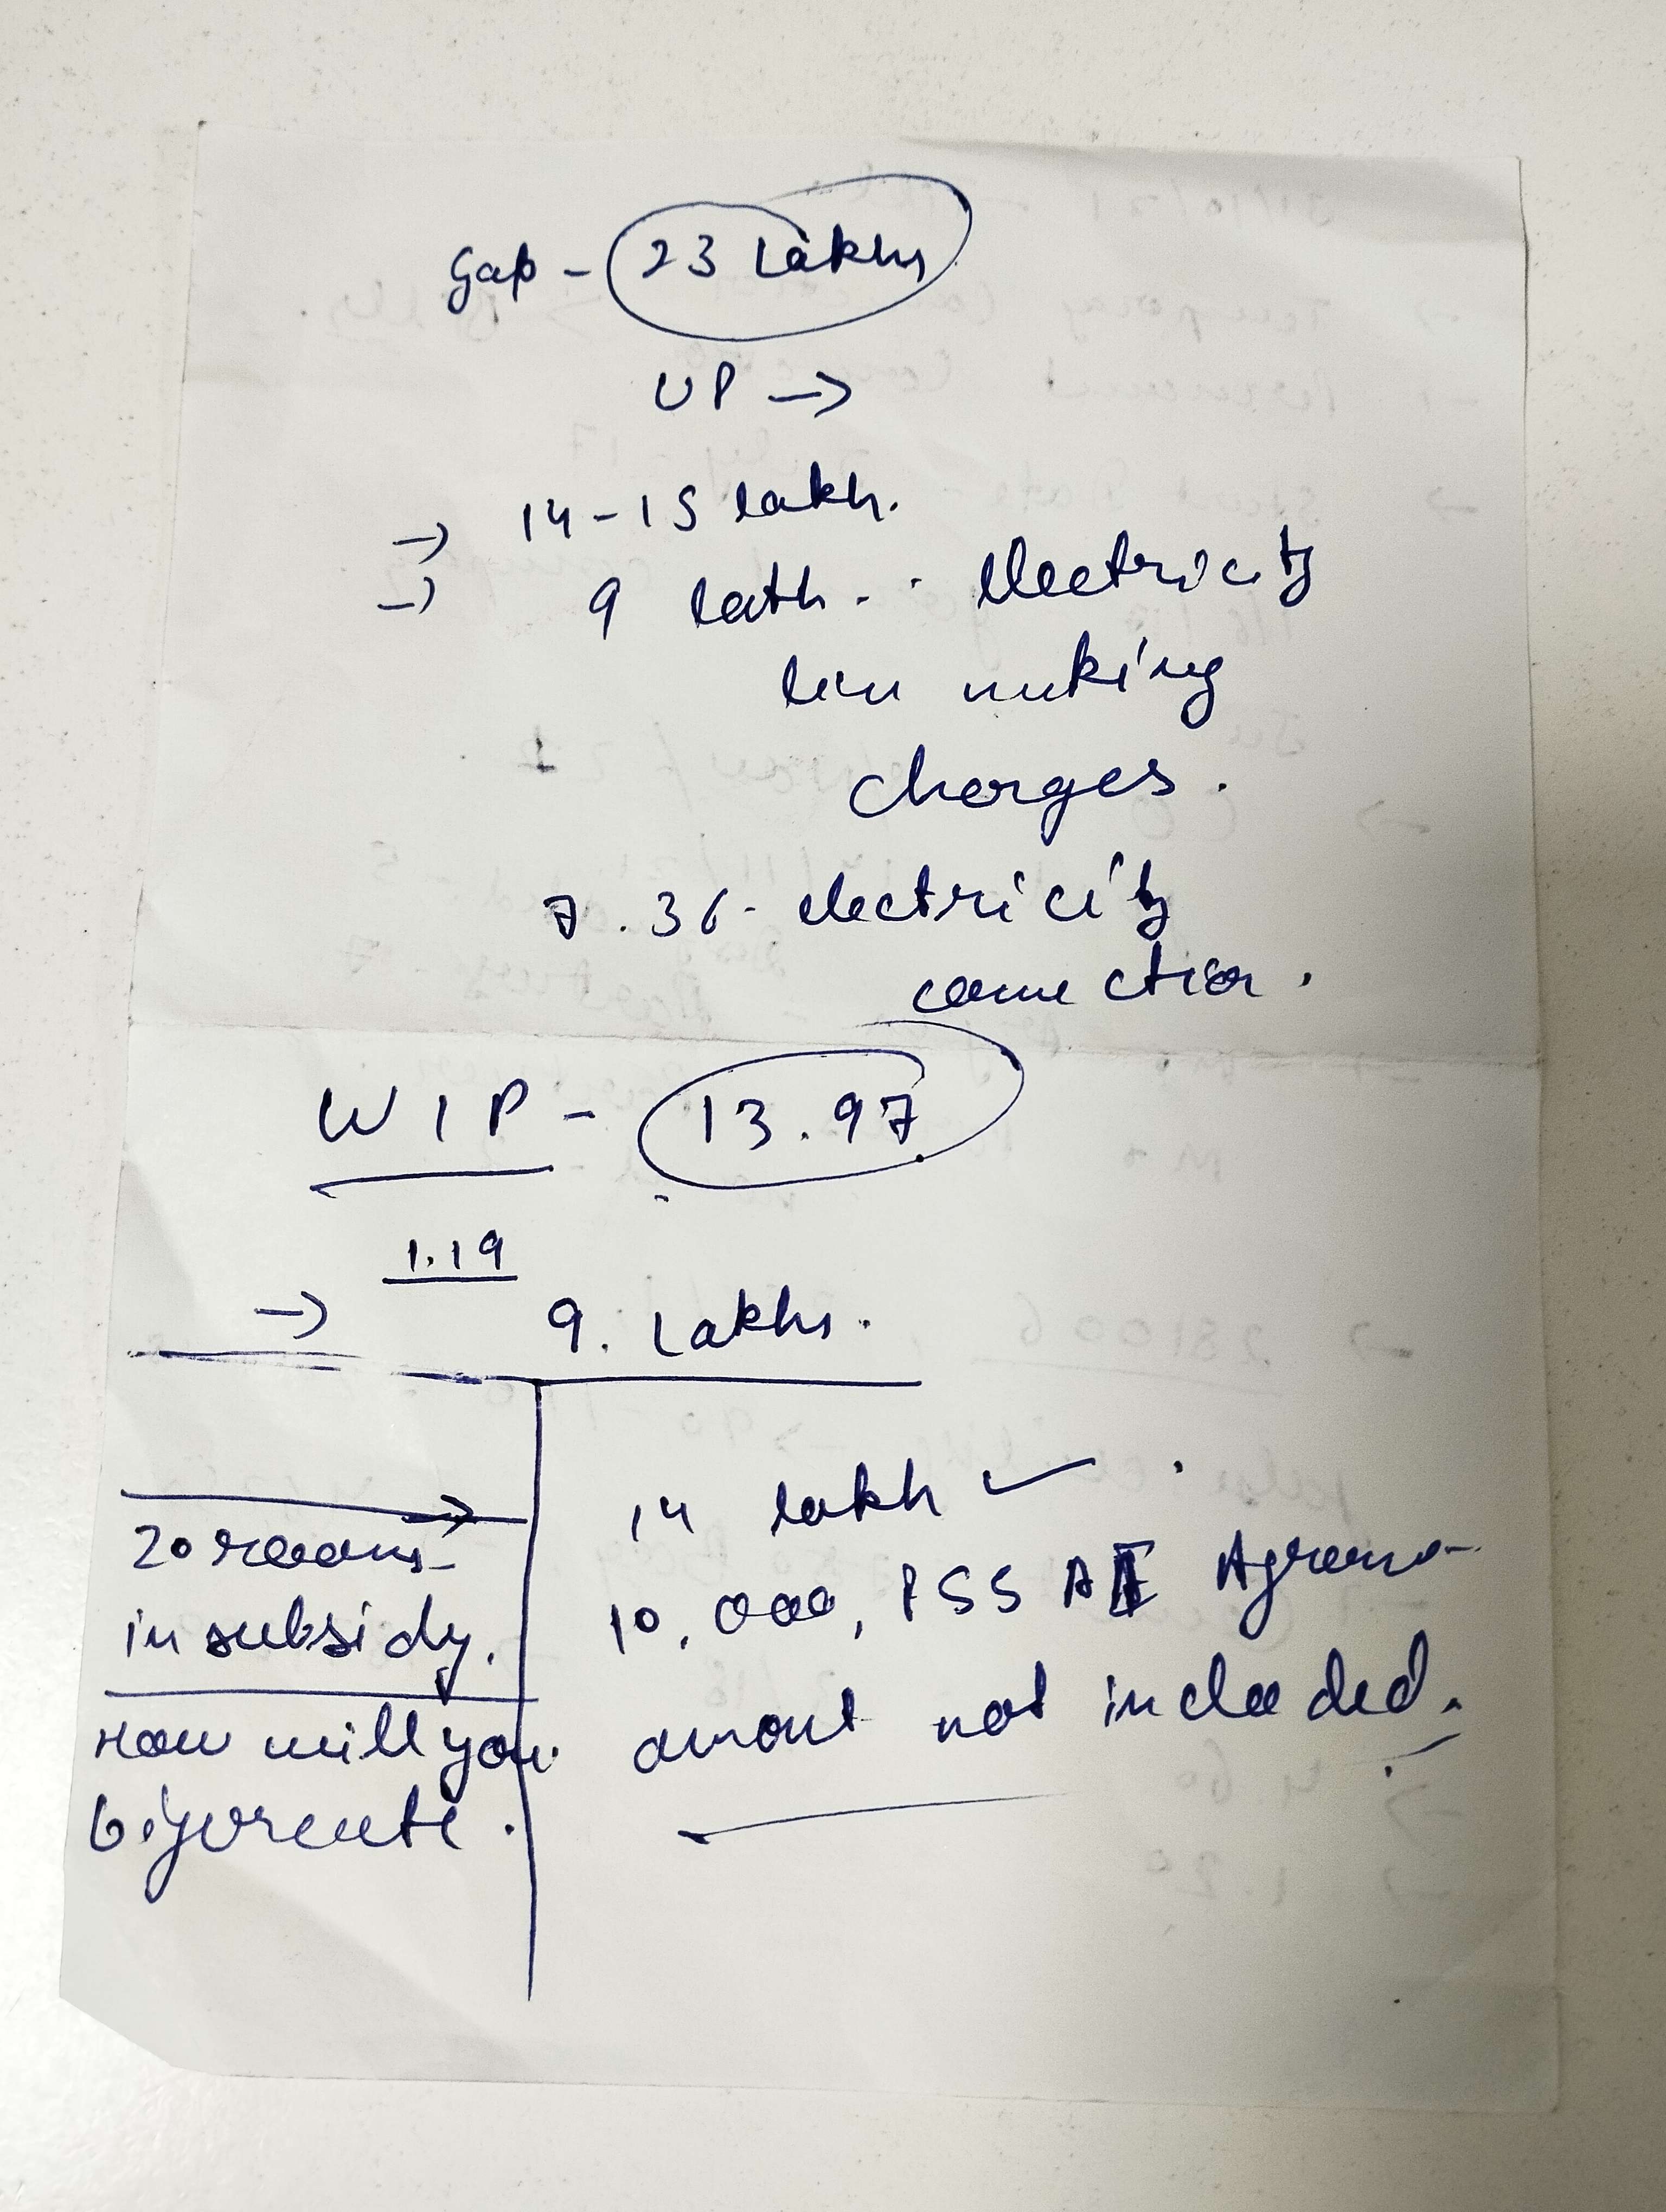 Gap - 23 Lakhs
UP →
→ 14-15 lakh.
→ 9 lakh. . Electricity
line making
charges.
7.36 - electricity
connection.
WIP - 13.97
1.19
→ 9. Lakhs.
14 lakh ✓
20 rooms
in subsidy.
10,000, PSS
amount not included.
How will you
bifurcate.